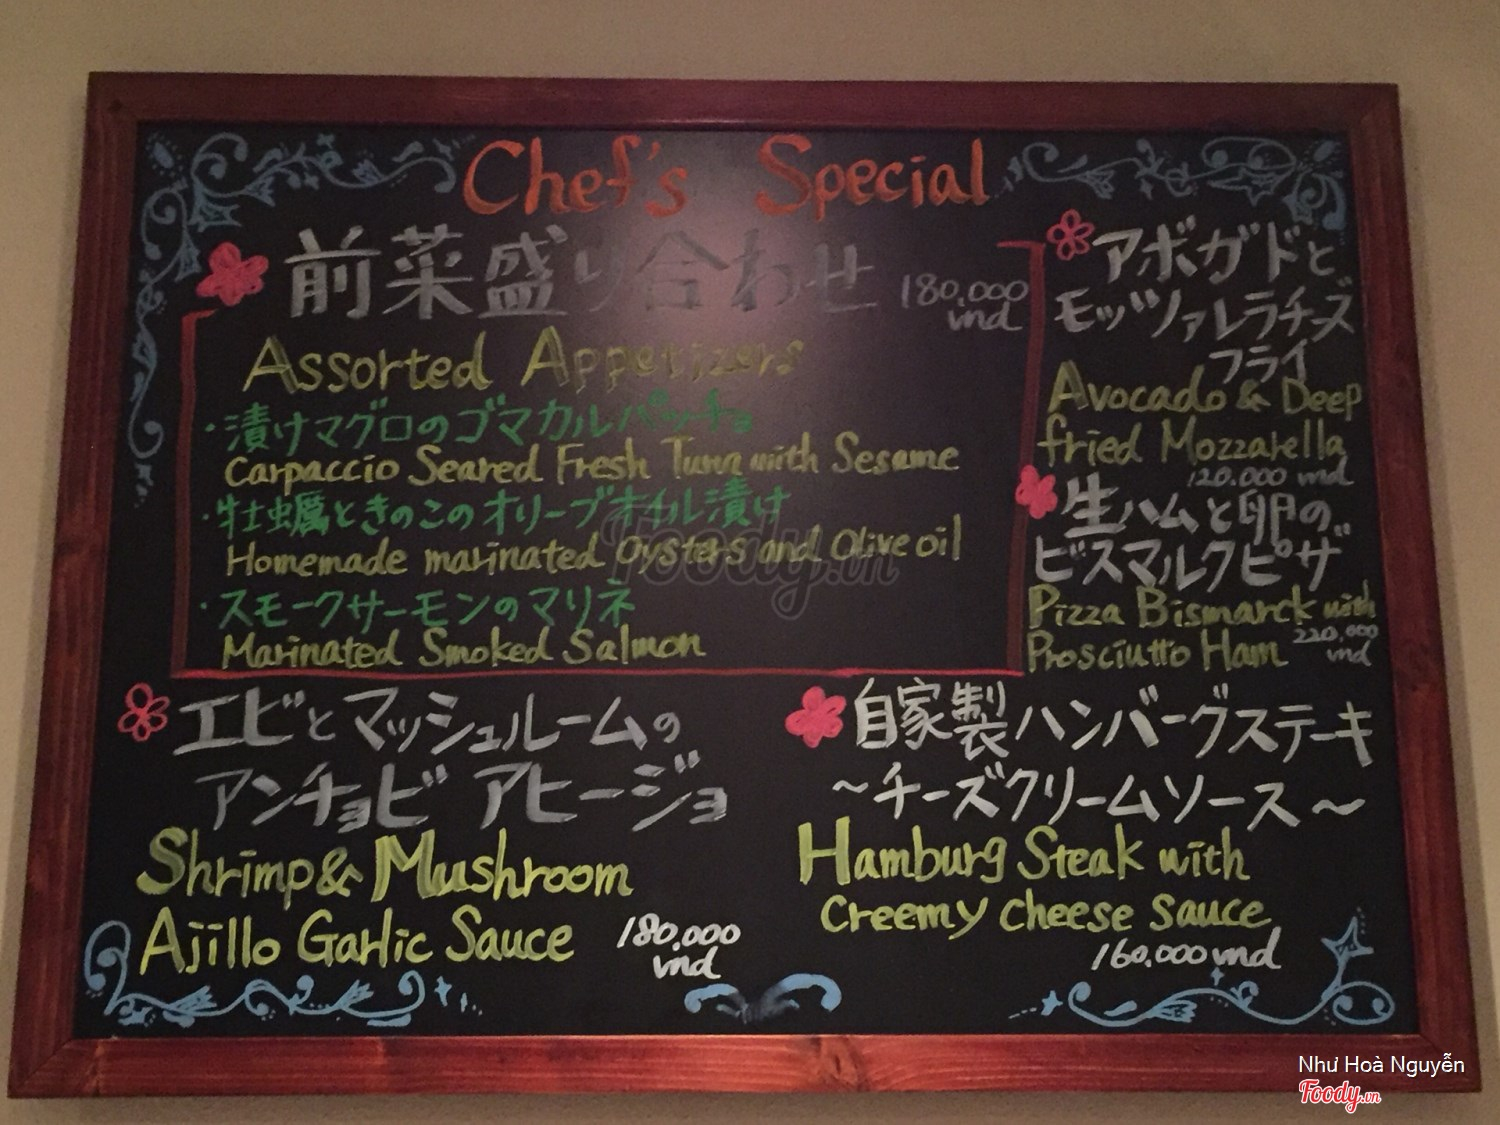 Chef's Special
前菜盛り合わせ
180.000
vnd
Assorted Appetizers
・漬けマグロのゴマカルパッチョ
Carpaccio Seared Fresh Tuna with Sesame
・牡蠣ときのこのオリーブオイル漬け
Homemade marinated Oysters and Olive oil
・スモークサーモンのマリネ
Marinated Smoked Salmon
アボガドと
モッツァレラチーズ
フライ
Avocado & Deep
fried Mozzarella
120.000 vnd
生ハムと卵の
ビスマルクピザ
Pizza Bismarck with
Prosciutto Ham
220,000
vnd
エビとマッシュルームの
アンチョビ アヒージョ
Shrimp & Mushroom
Ajillo Garlic Sauce
180.000
vnd
自家製ハンバーグステーキ
～チーズクリームソース～
Hamburg Steak with
Creemy cheese sauce
160.000 vnd
Foody.vn
Như Hoà Nguyễn
Foody.vn